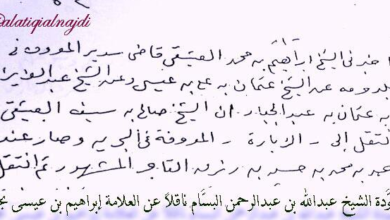 @alatiqialnajdi
خبرني الشيخ ابراهيم بن محمد العتيقي قاضي سدير المعروف في
عن الشيخ عثمان بن علي بن عيسى وعن الشيخ عبدالعزيز
بن عثمان بن عبدالجبار ان الشيخ صالح بن سيف العتيقي
انتقل إلى - الزبارة - المعروفة في البحرين وصار عند
بن محمد بن حسين بن رزق التاجر المشهور ثم انتقل
الشيخ عبدالله بن عبدالرحمن البسام ناقلاً عن العلامة إبراهيم بن عيسى